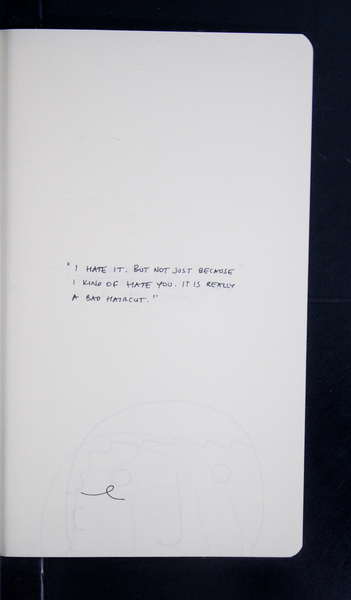 "I HATE IT. BUT NOT JUST BECAUSE
I KIND OF HATE YOU. IT IS REALLY
A BAD HAIRCUT."